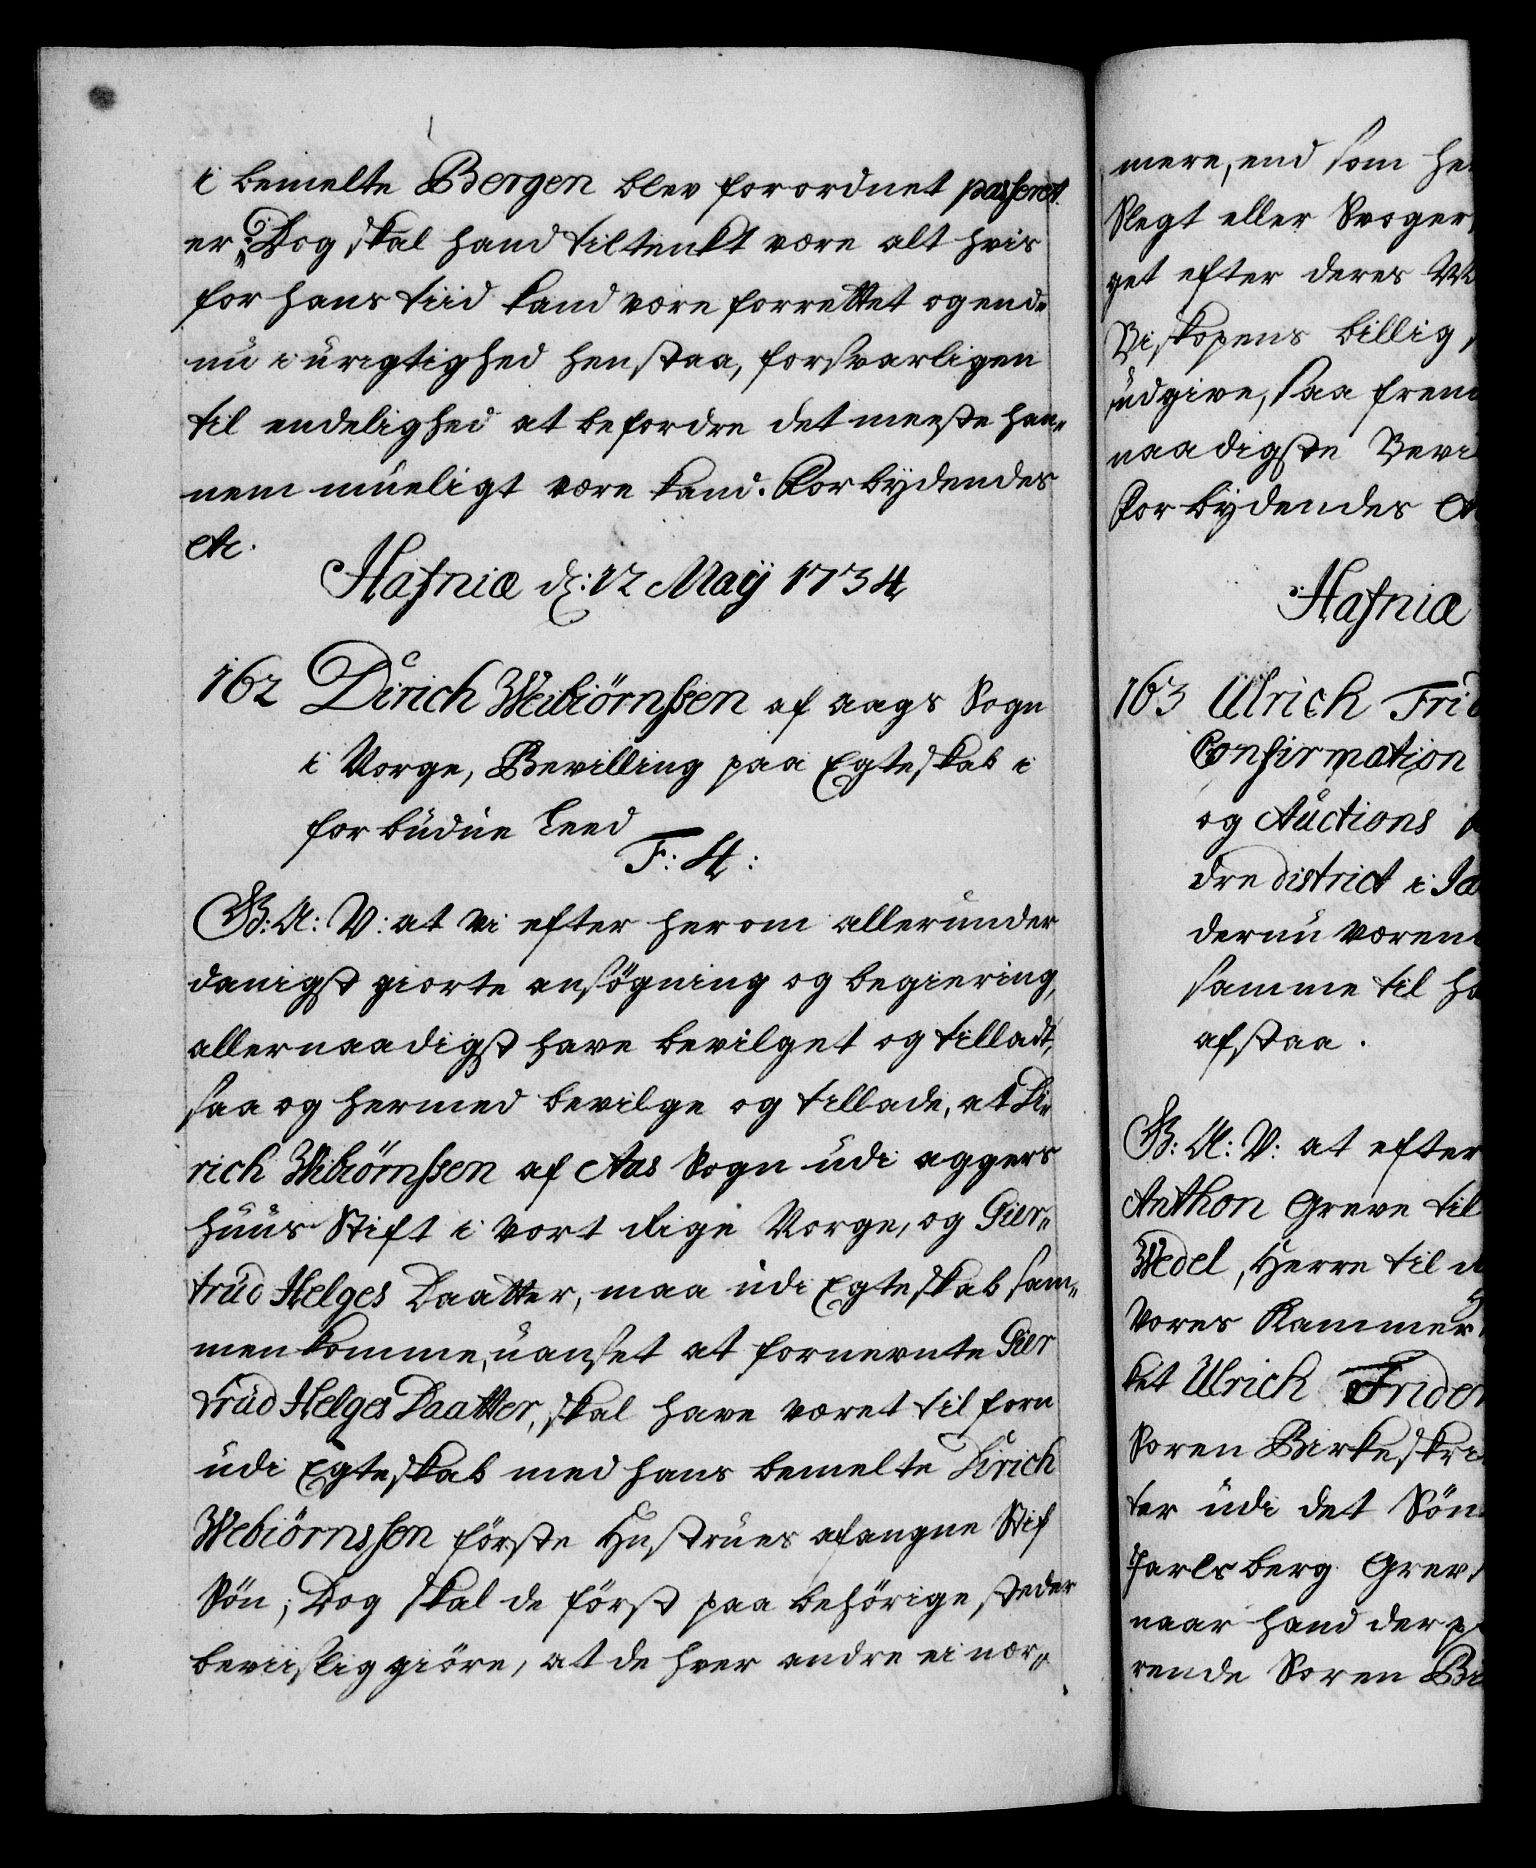 i bemelte Bergen blev forordnet passeret
er, Dog skal hand tiltenkt være alt hvis
for hans tiid kand være forrettet og end„
nu i urigtighed henstaa, forsvarligen
til endelighed at befordre det meeste han„
nem mueligt være kand. Forbydendes
etc.
Hafniæ d: 12 Maÿ 1734
162 Dirich Weibiörnssen af aags Sogn
i Norge, Bevilling paa Egteskab i
forbudne Leed
F: 4:
G: A: V: at vi efter herom allerunder
danigst giorte ansøgning og begiering,
allernaadigst have bevilget og tilladt,
saa og hermed bevilge og tillade, at Di„
rich Wibiörnssen af Aas Sogn udi aggers
huus Stift i vort Rige Norge, og Gier„
trud Helges Daatter, maa udi Egteskab sam„
menkomme, uanset at fornevnte Gier
trud Helges Daatter, skal have været tilforn
udi Egteskab med hans bemelte Dirich
Webiörnssen første Hustrues afangne Stif
Søn; Dog skal de først paa behørige steder
beviislig giøre, at de hver andre ei nær„
mere, end som
Slegt eller Svoger
get efter deres
Biskopens billig
udgive, saa frem
naadigste Bevi
Forbydendes
Hafniæ
163 Ulrich Frid
Confirmation
og Auctions
dre district i
dernu væren
samme til
afstaa.
G: A: V: at efter
Anthon Greve til
Wedel, Herre til
Vores Kammer
ket Ulrich Frider
Soren Birkeskri
ter udi det Søn
Jarlsberg Grev
naar hand der
rende Soren Bi